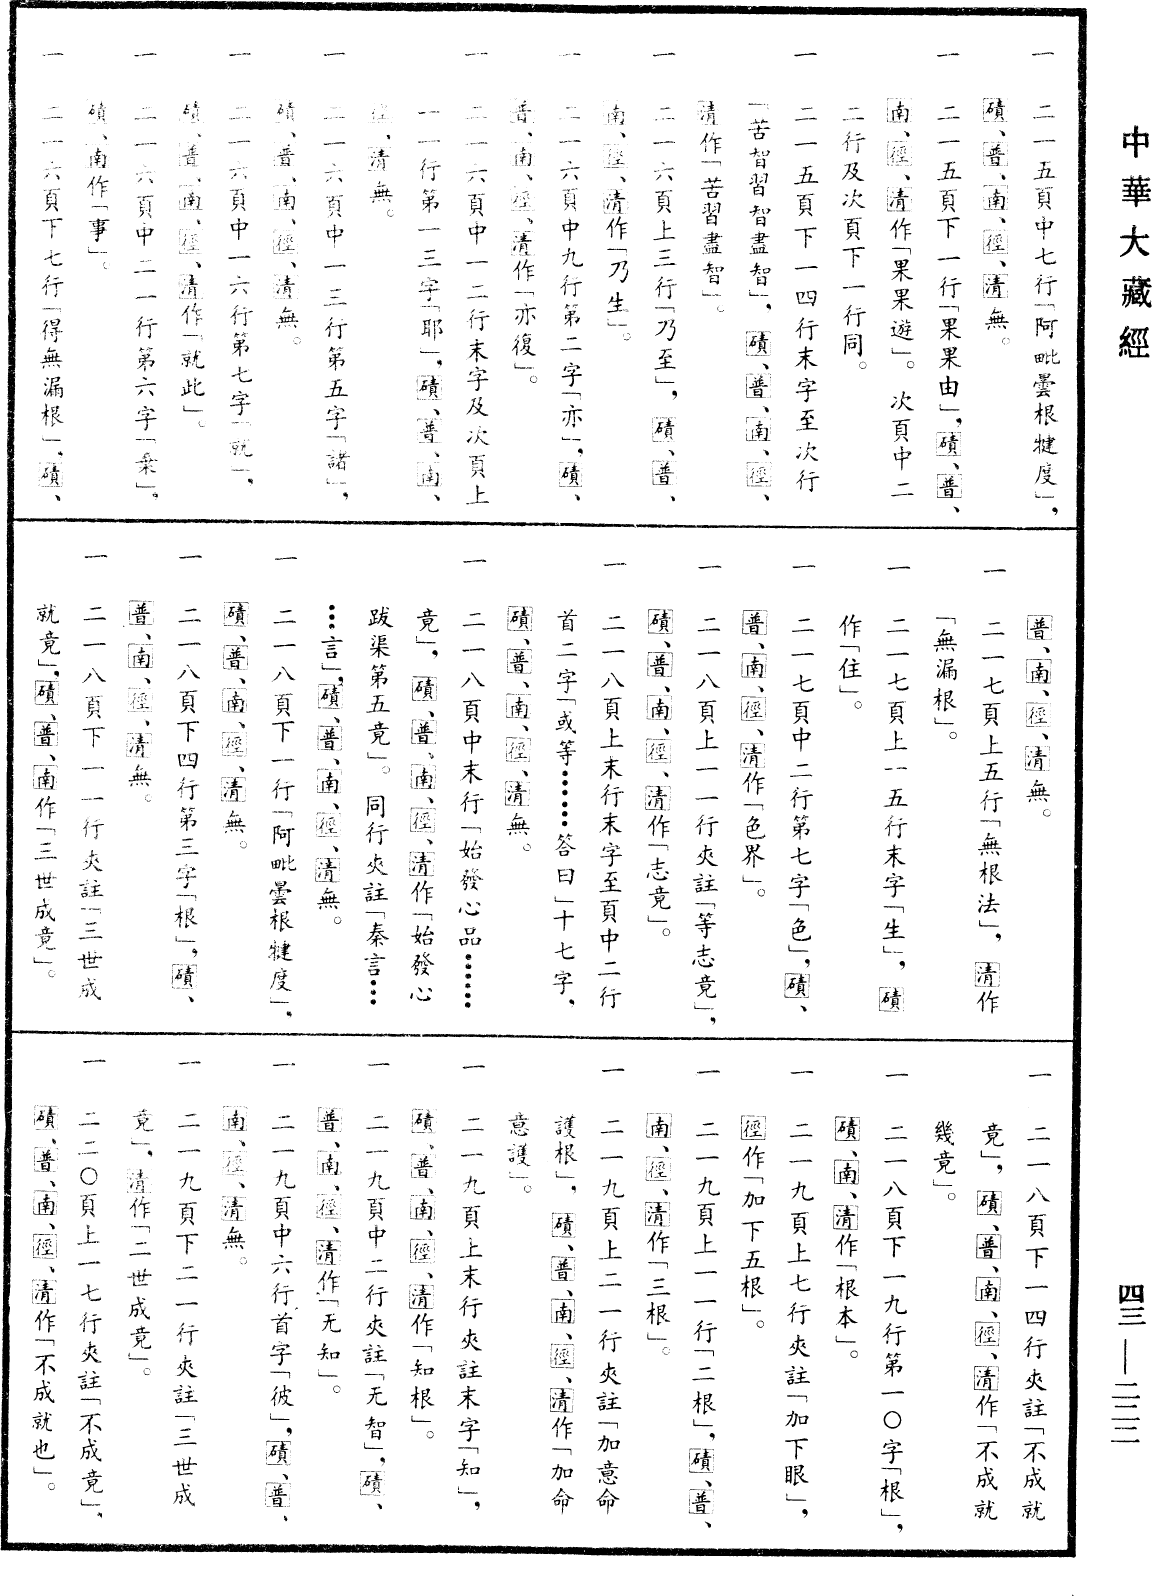 中華大藏經
四三—二二二
一　二一五頁中七行「阿毗曇根犍度」，
磧、普、南、徑、清無。
一　二一五頁下一行「果果由」，磧、普、
南、徑、清作「果果遊」。次頁中二
二行及次頁下一行同。
一　二一五頁下一四行末字至次行
「苦智習智盡智」，磧、普、南、徑、
清作「苦習盡智」。
一　二一六頁上三行「乃至」，磧、普、
南、徑、清作「乃生」。
一　二一六頁中九行第二字「亦」，磧、
普、南、徑、清作「亦復」。
一　二一六頁中一二行末字及次頁上
一一行第一三字「耶」，磧、普、南、
徑、清無。
一　二一六頁中一三行第五字「諸」，
磧、普、南、徑、清無。
一　二一六頁中一六行第七字「就」，
磧、普、南、徑、清作「就此」。
一　二一六頁中二一行第六字「乗」。
磧、南作「事」。
一　二一六頁下七行「得無漏根」，磧、
普、南、徑、清無。
一　二一七頁上五行「無根法」，清作
「無漏根」。
一　二一七頁上一五行末字「生」，磧
作「住」。
一　二一七頁中二行第七字「色」，磧、
普、南、徑、清作「色界」。
一　二一八頁上一一行夾註「等志竟」，
磧、普、南、徑、清作「志竟」。
一　二一八頁上末行末字至頁中二行
首二字「或等……答曰」十七字，
磧、普、南、徑、清無。
一　二一八頁中末行「始發心品……
竟」，磧、普、南、徑、清作「始發心
跋渠第五竟」。同行夾註「秦言…
…言」，磧、普、南、徑、清無。
一　二一八頁下一行「阿毗曇根犍度」，
磧、普、南、徑、清無。
一　二一八頁下四行第三字「根」，磧、
普、南、徑、清無。
一　二一八頁下一一行夾註「三世成
就竟」，磧、普、南作「三世成竟」。
一　二一八頁下一四行夾註「不成就
竟」，磧、普、南、徑、清作「不成就
幾竟」。
一　二一八頁下一九行第一〇字「根」，
磧、南、清作「根本」。
一　二一九頁上七行夾註「加下眼」，
徑作「加下五根」。
一　二一九頁上一一行「二根」，磧、普、
南、徑、清作「三根」。
一　二一九頁上二一行夾註「加意命
護根」，磧、普、南、徑、清作「加命
意護」。
一　二一九頁上末行夾註末字「知」，
磧、普、南、徑、清作「知根」。
一　二一九頁中二行夾註「无智」，磧、
普、南、徑、清作「无知」。
一　二一九頁中六行首字「彼」，磧、普、
南、徑、清無。
一　二一九頁下二一行夾註「三世成
竟」，清作「二世成竟」。
一　二二〇頁上一七行夾註「不成竟」，
磧、普、南、徑、清作「不成就也」。